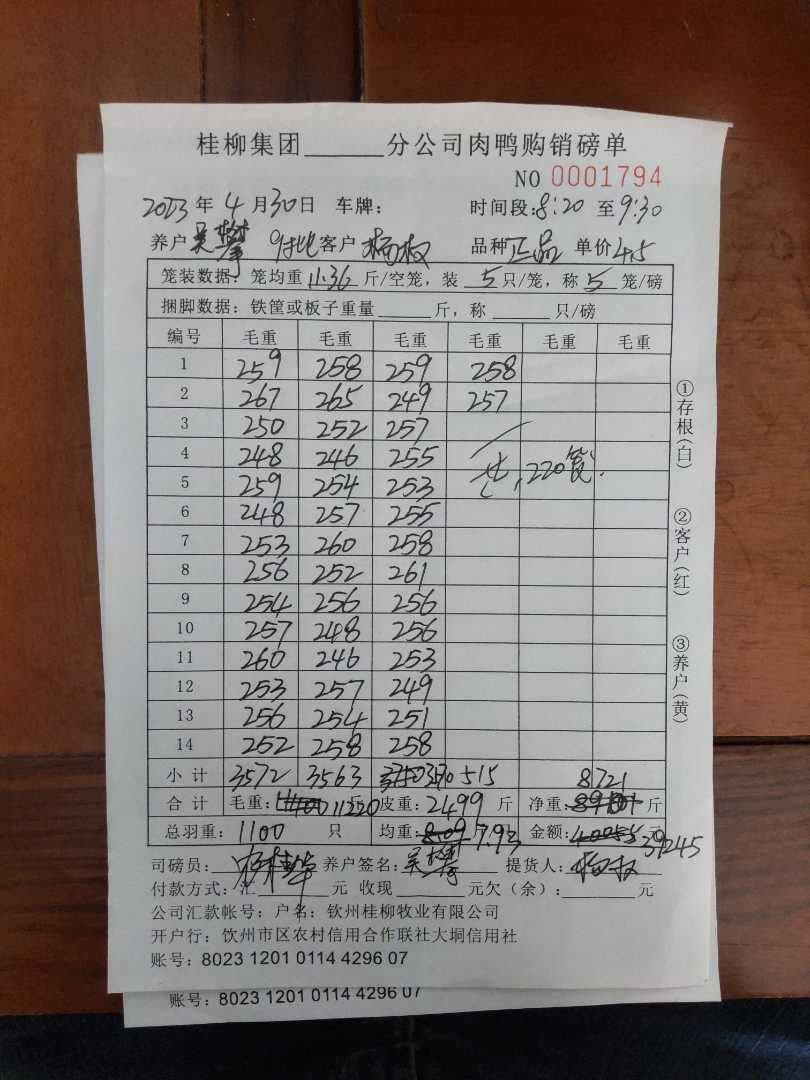 桂柳集团______分公司肉鸭购销磅单
NO 0001794
2023年4月30日 车牌： 时间段：8:20 至9:30
养户吴攀 客户杨权 品种正品 单价4.5
笼装数据：笼均重11.36斤/空笼，装5只/笼，称5笼/磅
捆脚数据：铁筐或板子重量______斤，称______只/磅
编号 毛重 毛重 毛重 毛重 毛重 毛重
1 259 258 259 258
2 267 265 249 257
3 250 252 257
4 248 246 255
5 259 254 253 220筐.
6 248 257 255
7 253 260 258
8 256 252 261
9 254 256 256
10 257 248 256
11 260 246 253
12 253 257 249
13 256 254 251
14 252 258 258
小计 3572 3563 3570 515 8721
合计 毛重：11220 斤 皮重：2499斤 净重： 斤
总羽重：1100 只 均重：8.09 7.93 金额：40055 39245
司磅员： 养户签名：吴攀 提货人：杨权
付款方式：汇______元 收现______元欠（余）：______元
公司汇款帐号：户名：钦州桂柳牧业有限公司
开户行：饮州市区农村信用合作联社大垌信用社
账号：8023 1201 0114 4296 07
账号：8023 1201 0114 4296 07
①存根(白)
②客户(红)
③养户(黄)